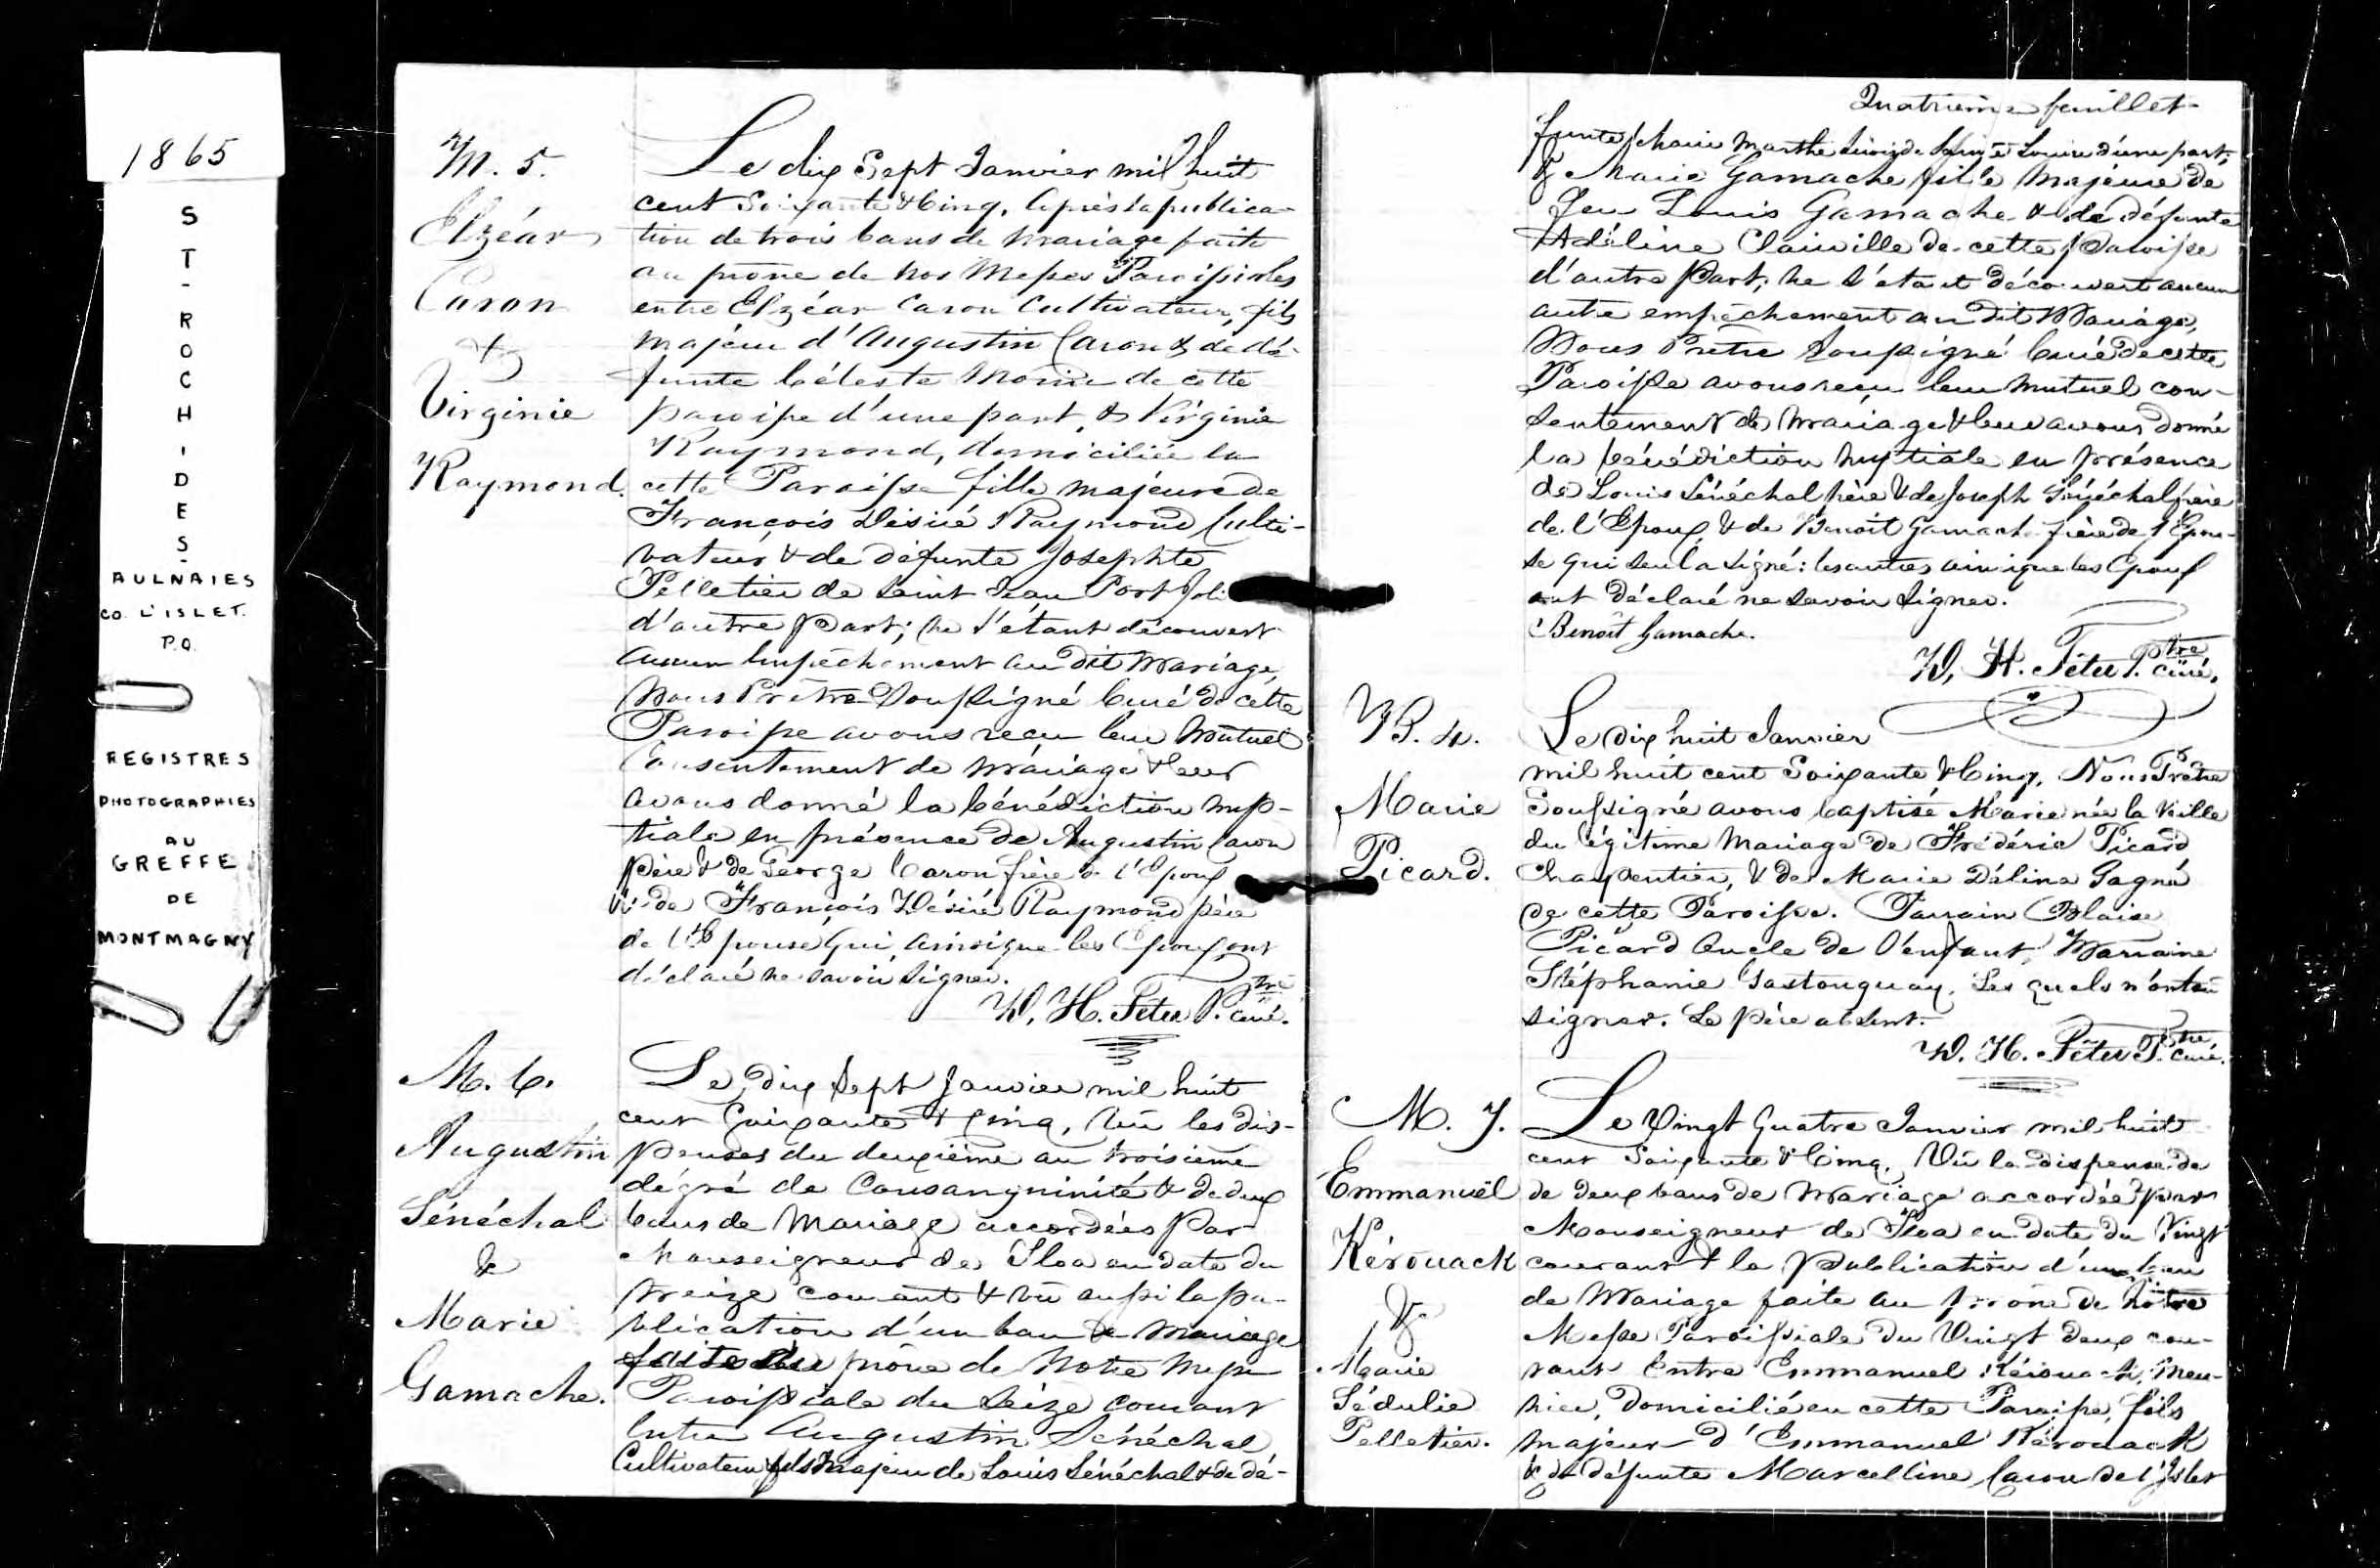 1865
ST-ROCH-DES-
AULNAIES
CO. L'ISLET.
P.Q.
REGISTRES
PHOTOGRAPHIES
AU
GREFFE
DE
MONTMAGNY
M. 5.
Elzéar
Caron
&
Virginie
Raymond.
Le dix Sept Janvier mil huit
cent Soixante & Cinq, après la publica-
tion de trois bans de mariage faite
au prône de nos Messes Paroissiales
entre Elzéar Caron Cultivateur, fils
majeur d'Augustin Caron & de dé-
funte Céleste Morin de cette
paroisse d'une part, & Virginie
Raymond, domiciliée en
cette Paroisse fille majeure de
François Désiré Raymond Culti-
vateur & de défunte Josephte
Pelletier de Saint Jean Port Joli
d'autre part; ne s'étant découvert
aucun empêchement au dit mariage,
Nous Prêtre Soussigné Curé de cette
Paroisse avons reçu leur mutuel
Consentement de mariage & leur
avons donné la bénédiction nup-
tiale en présence de Augustin Caron
père & de George Caron frère de l'Epoux
& de François Désiré Raymond père
de l'Epouse qui, ainsi que les Epoux, ont
déclaré ne savoir signer.
D. H. Têtu Ptre curé.
M. 6.
Augustin
Sénéchal
&
Marie
Gamache.
Le dix Sept Janvier mil huit
cent Soixante & Cinq, Vû les dis-
penses du deuxième au troisième
dégré de Consanguinité & de deux
bans de Mariage accordées par
Monseigneur de Tloa en date du
treize courant & vû aussi la pu-
blication d'un ban de mariage
faite au prône de Notre Messe
Paroissiale du Seize courant
Entre Augustin Sénéchal
Cultivateur fils majeur de Louis Sénéchal & de dé-
Quatrième feuillet
funte Marie Marthe de Sainte Louise d'une part,
& Marie Gamache fille Majeure de
feu Louis Gamache & de défunte
Adéline Clairville de cette Paroisse
d'autre Part; ne s'étant découvert aucun
autre empêchement au dit Mariage,
Nous Prêtre Soussigné Curé de cette
Paroisse avons reçu leur mutuel con-
sentement de mariage & leur avons donné
la bénédiction nuptiale en présence
de Louis Sénéchal père & de Joseph Sénéchal frère
de l'Epoux & de Benoît Gamache frère de l'Epou-
se qui seul a signé: les autres ainsi que les Epoux
ont déclaré ne savoir signer.
Benoît Gamache.
D. H. Têtu Ptre curé.
B. 4.
Marie
Picard.
Le dix huit Janvier
mil huit cent Soixante & Cinq, Nous Prêtre
Soussigné avons baptisé Marie née la veille
du légitime mariage de Frédéric Picard
Charpentier, & de Marie Délina Gagné
de cette Paroisse. Parrain Blaise
Picard Oncle de l'enfant, Marraine
Stéphanie Gastonguay, Les quels n'ont su
signer. Le père absent.
D. H. Têtu Ptre curé.
M. 7.
Emmanuël
Kérouack
&
Marie
Sédulie
Pelletier.
Le Vingt Quatre Janvier mil huit
cent Soixante & Cinq, Vû la dispense de
de deux bans de Mariage accordée par
Monseigneur de Tloa en date du Vingt
courant & la Publication d'un ban
de Mariage faite au prône de Notre
Messe Paroissiale du Vingt deux cou-
rant Entre Emmanuel Kérouack, Meu-
nier, domicilié en cette Paroisse, fils
majeur d'Emmanuel Kérouack
& de défunte Marcelline Caron de l'Islet